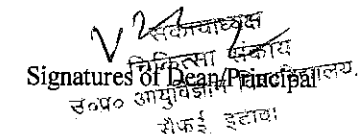 संकायाध्यक्ष
चिकित्सा संकाय
Signatures of Dean/Principal
उ०प्र० आयुर्विज्ञान विश्वविद्यालय.
सैफई, इटावा